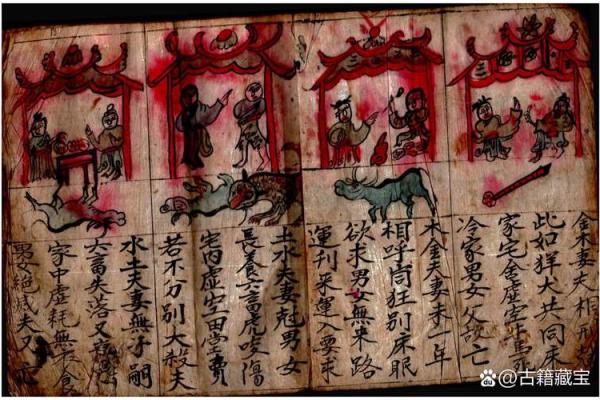 金木妻夫相刑
此如犬共同床
家宅舍虚空
冷家男女父故亡
木金夫妻未一年
相呼狂别床眠
欲求男女無來路
運刊來運入要求
土水夫妻尅男女
長養六畜虎咬傷
宅内虚空田費
若不分别大殺夫
水土夫妻無子嗣
六畜失落又
家中虚耗無衣食
男女絶滅夫又
@古籍藏宝